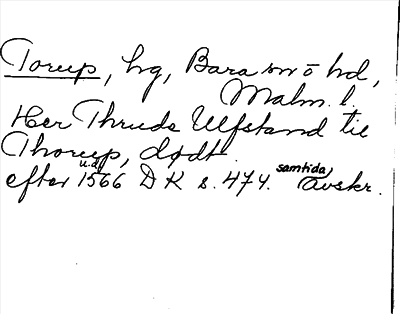 Torup, hg, Bara sn o hd,
Malm. l.
Her Thruds Ulfstand til
Thorup, dødt
u.d.
efter 1566 DK s. 474. samtida avskr.